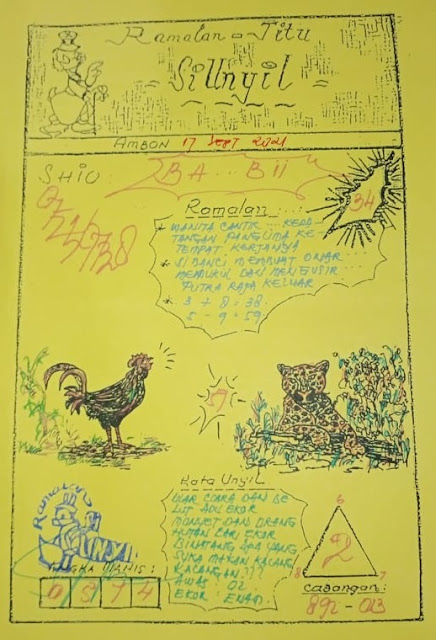 Ramalan - Jitu
Si Unyil
AMBON 17 Sept 2021
SHIO
2BA ... B11
34
Ramalan
* WANITA CANTIK ... KEDA-
TANGAN PANGLIMA KE-
TEMPAT KERJANYA
* SI BANCI MEMBUAT ONAR
MEMUKUL DAN MENGUSIR
PUTRA RAJA KELUAR
* 3 + 8 = 38
5 - 9 = 59
7
Ramalan
UNYIL
Kata Unyil
ULAR COBRA DAN BE
LUT ADU EKOR
MONYET DAN ORANG
HUTAN CARI EKOR
BINATANG APA YANG
SUKA MAKAN KACANG
KACANGAN ???
AWAS : 02
EKOR : ENAM
MANIS :
0 3 7 4
6
2
8 7
Cadangan :
892 - 013